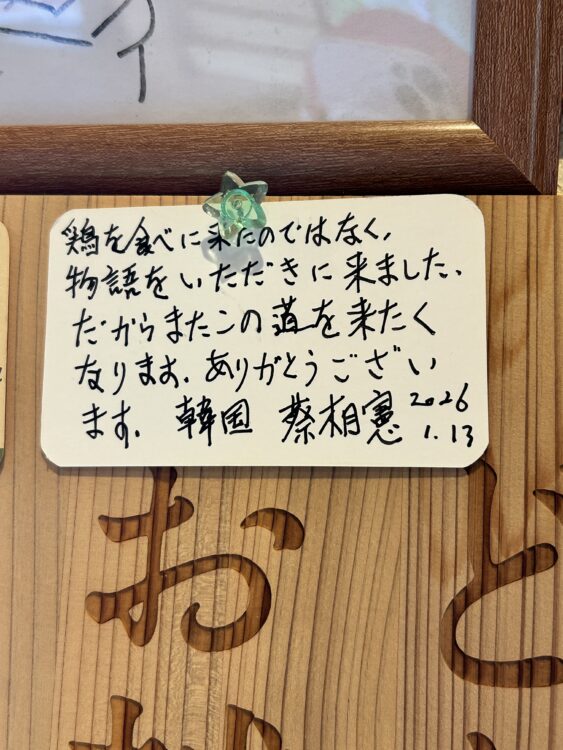 イ
鶏を食べに来たのではなく、
物語をいただきに来ました、
だからまたこの道を来たく
なります。ありがとうござい
ます。 韓国 蔡相憲 2026
1.13
お
ど